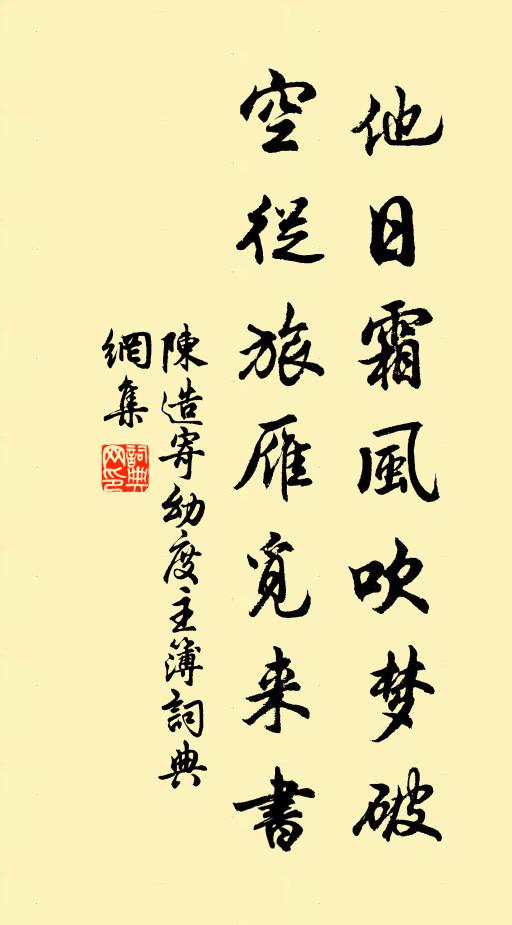 他日霜風吹梦破
空從旅雁覓来書
陳造寄幼度主簿詞典
網集
詞典
网印